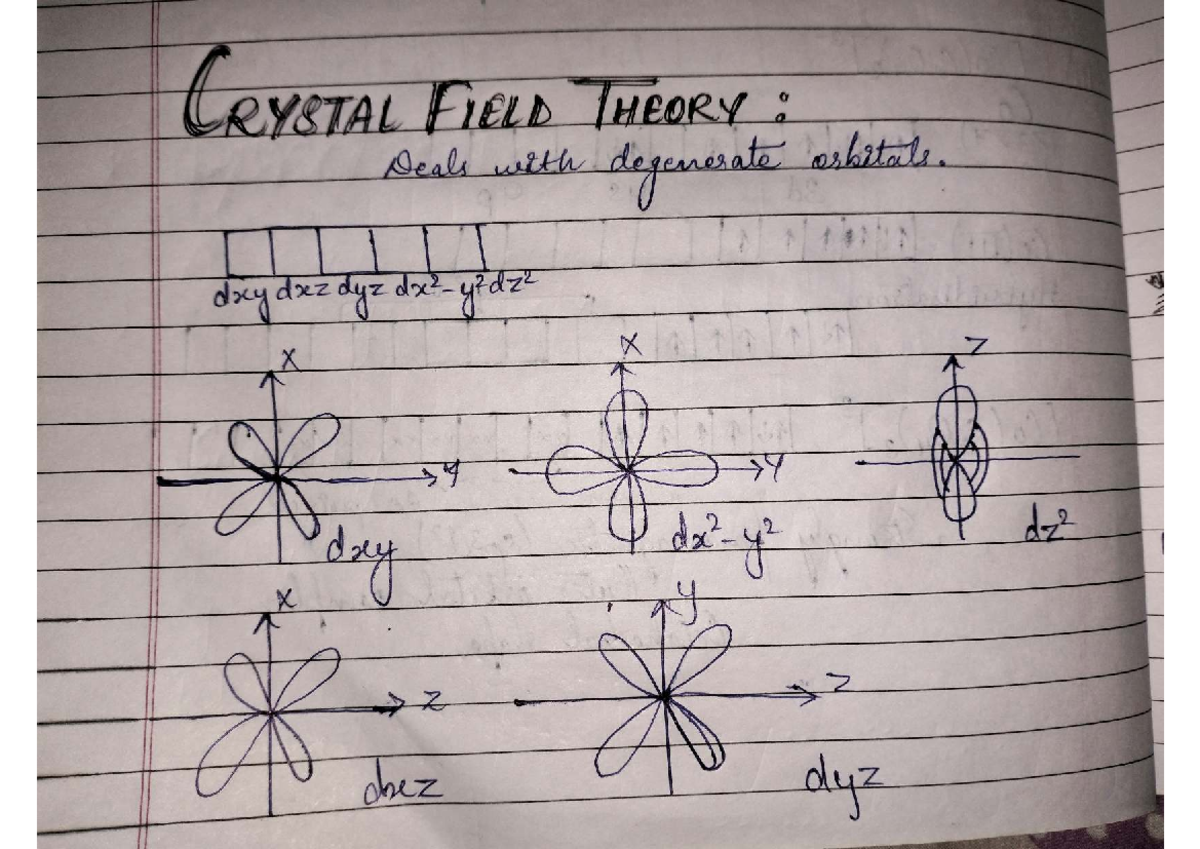 CRYSTAL FIELD THEORY :
Deals with degenerate orbitals.
dxy dxz dyz dx²-y² dz²
X
X
Z
Y
Y
dxy
dx²-y²
dz²
X
y
Z
Z
dxz
dyz